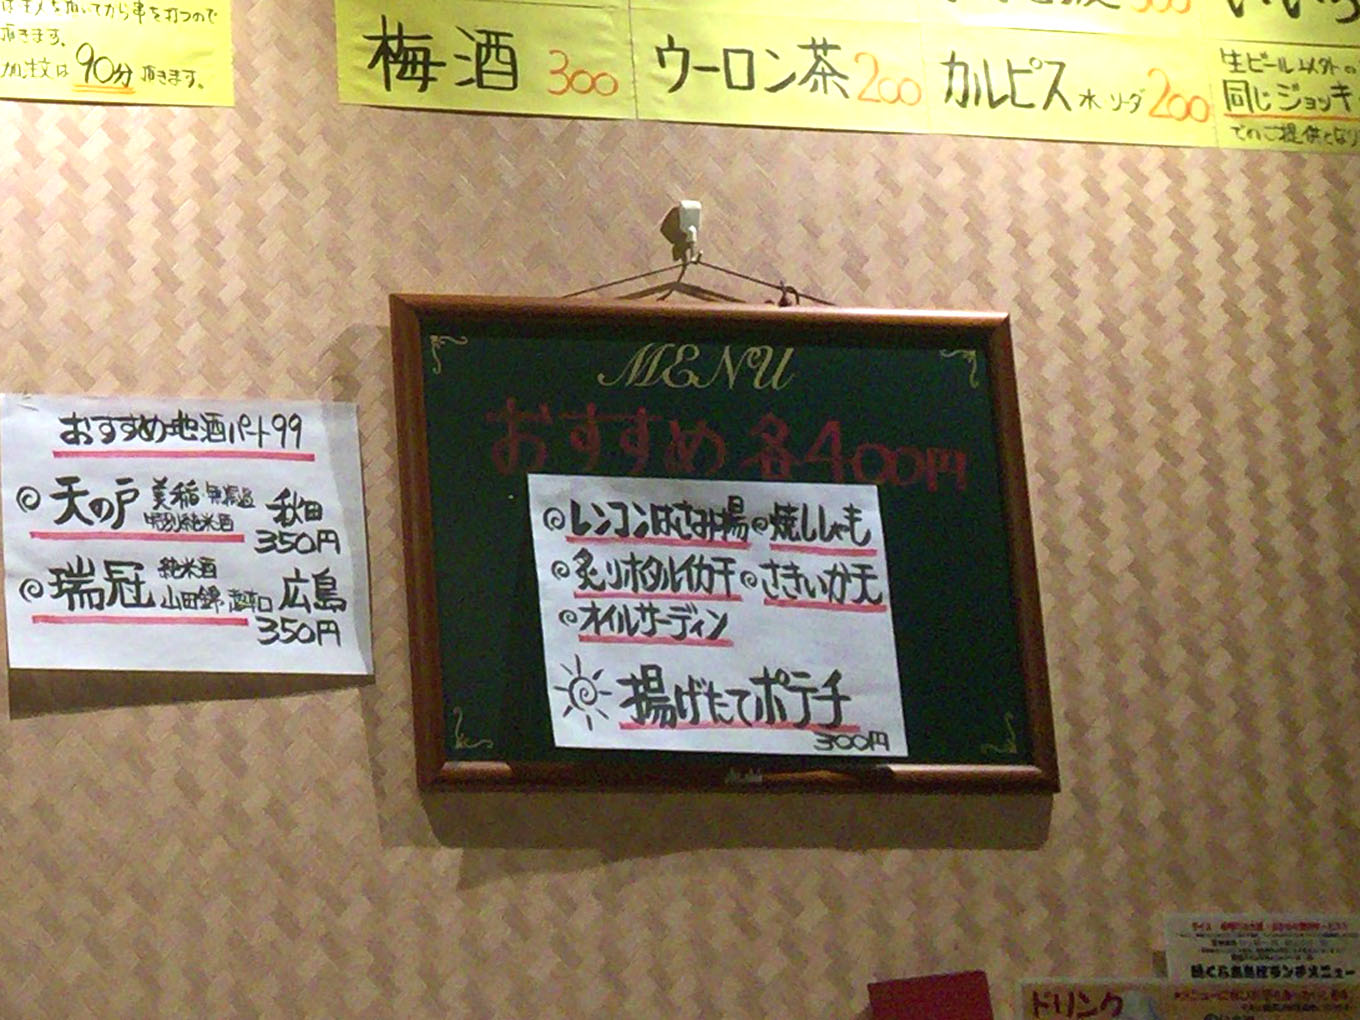 を打つので
頂きます。
加注文は90分頂きます。
梅酒 300
ウーロン茶 200
カルピス 水 ソーダ 200
生ビール以外の
同じジョッキ
でのご提供となり
MENU
おすすめ 各400円
レンコンはさみ揚 焼ししゃも
炙りホタルイカ干 さきいか天
オイルサーディン
揚げたてポテチ
300円
おすすめ地酒パート99
天の戸 美稲 無濾過 特別純米酒 秋田
350円
瑞冠 純米酒 山田錦 超辛口 広島
350円
ドリンク